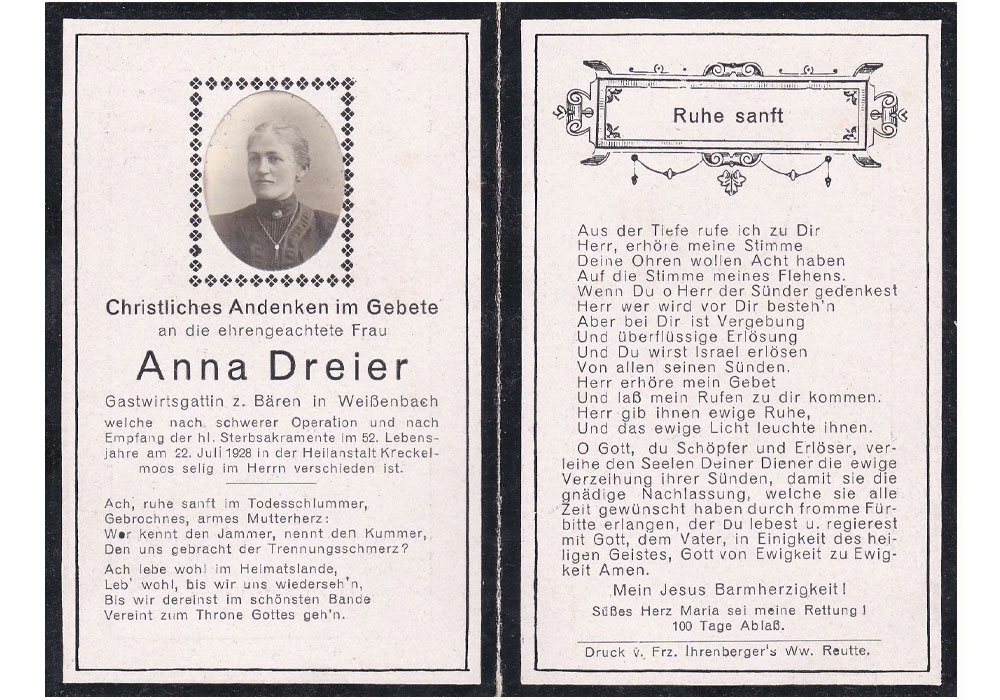 Christliches Andenken im Gebete
an die ehrengeachtete Frau
Anna Dreier
Gastwirtsgattin z. Bären in Weißenbach
welche nach schwerer Operation und nach
Empfang der hl. Sterbsakramente im 52. Lebens-
jahre am 22. Juli 1928 in der Heilanstalt Kreckel-
moos selig im Herrn verschieden ist.
Ach, ruhe sanft im Todesschlummer,
Gebrochnes, armes Mutterherz:
Wer kennt den Jammer, nennt den Kummer,
Den uns gebracht der Trennungsschmerz?
Ach lebe wohl im Heimatslande,
Leb' wohl, bis wir uns wiederseh'n,
Bis wir dereinst im schönsten Bande
Vereint zum Throne Gottes geh'n.
Ruhe sanft
Aus der Tiefe rufe ich zu Dir
Herr, erhöre meine Stimme
Deine Ohren wollen Acht haben
Auf die Stimme meines Flehens.
Wenn Du o Herr der Sünder gedenkest
Herr wer wird vor Dir besteh'n
Aber bei Dir ist Vergebung
Und überflüssige Erlösung
Und Du wirst Israel erlösen
Von allen seinen Sünden.
Herr erhöre mein Gebet
Und laß mein Rufen zu dir kommen.
Herr gib ihnen ewige Ruhe,
Und das ewige Licht leuchte ihnen.
O Gott, du Schöpfer und Erlöser, ver-
leihe den Seelen Deiner Diener die ewige
Verzeihung ihrer Sünden, damit sie die
gnädige Nachlassung, welche sie alle
Zeit gewünscht haben durch fromme Für-
bitte erlangen, der Du lebest u. regierest
mit Gott, dem Vater, in Einigkeit des hei-
ligen Geistes, Gott von Ewigkeit zu Ewig-
keit Amen.
Mein Jesus Barmherzigkeit!
Süßes Herz Maria sei meine Rettung!
100 Tage Ablaß.
Druck v. Frz. Ihrenberger's Ww. Reutte.